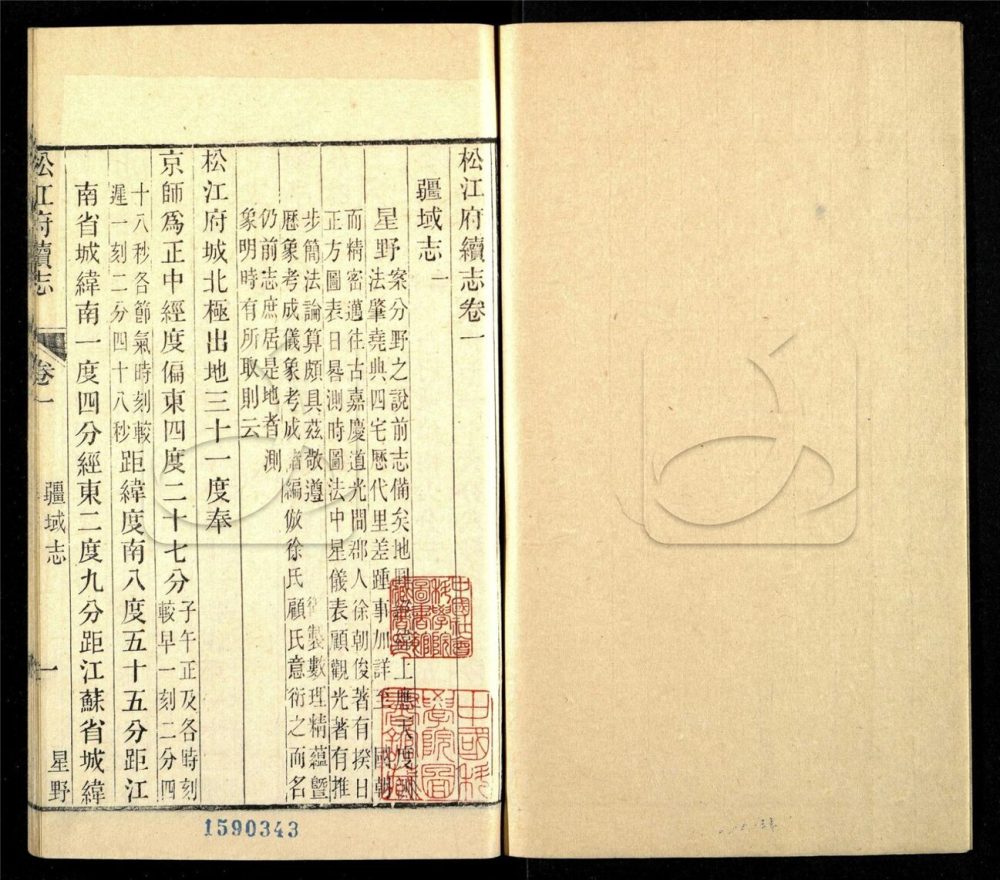 松江府續志卷一
疆域志一
星野案分野之說前志備矣地
上應天度
法肇堯典四宅歷代里差踵事加詳至國朝
而精密邁往古嘉慶道光間郡人徐朝俊著有揆日
正方圖表日晷測時圖法中星儀表顧觀光著有推
步簡法論算頗具茲敬遵
製數理精蘊曁
曆象考成儀象考成
編倣徐氏顧氏意術之而名
仍前志庶居是地者測
象明時有所取則云
松江府城北極出地三十一度奉
京師爲正中經度偏東四度二十七分子午正及各時刻
較早一刻二分四
十八秒各節氣時刻較
遲一刻二分四十八秒距緯度南八度五十五分距江
南省城緯南一度四分經東二度九分距江蘇省城緯
松江府續志
卷一
疆域志
一
星野
中國社會
科學院
圖書館
藏書
中國科
學院圖
1590343